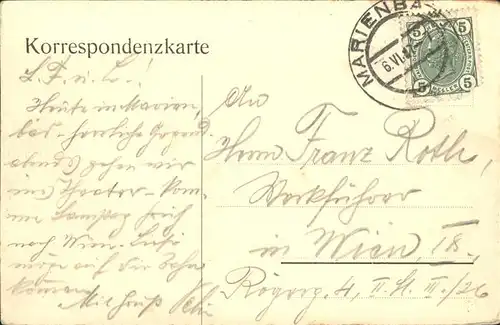 Korrespondenzkarte
MARIENBA
6.VI.
5 5
5 5
HELLER
L. F. u. L.!
Heute in Marien,
bad - herrliche Gegend.
abends gehen wir
ins Theater - kom
men Samstag früh
nach Wien.
möge auf die Bahn
kommen
Mit Gruß
An
Herrn Franz Roth,
Werkführer
in Wien, IX.
4, II. St. III./26